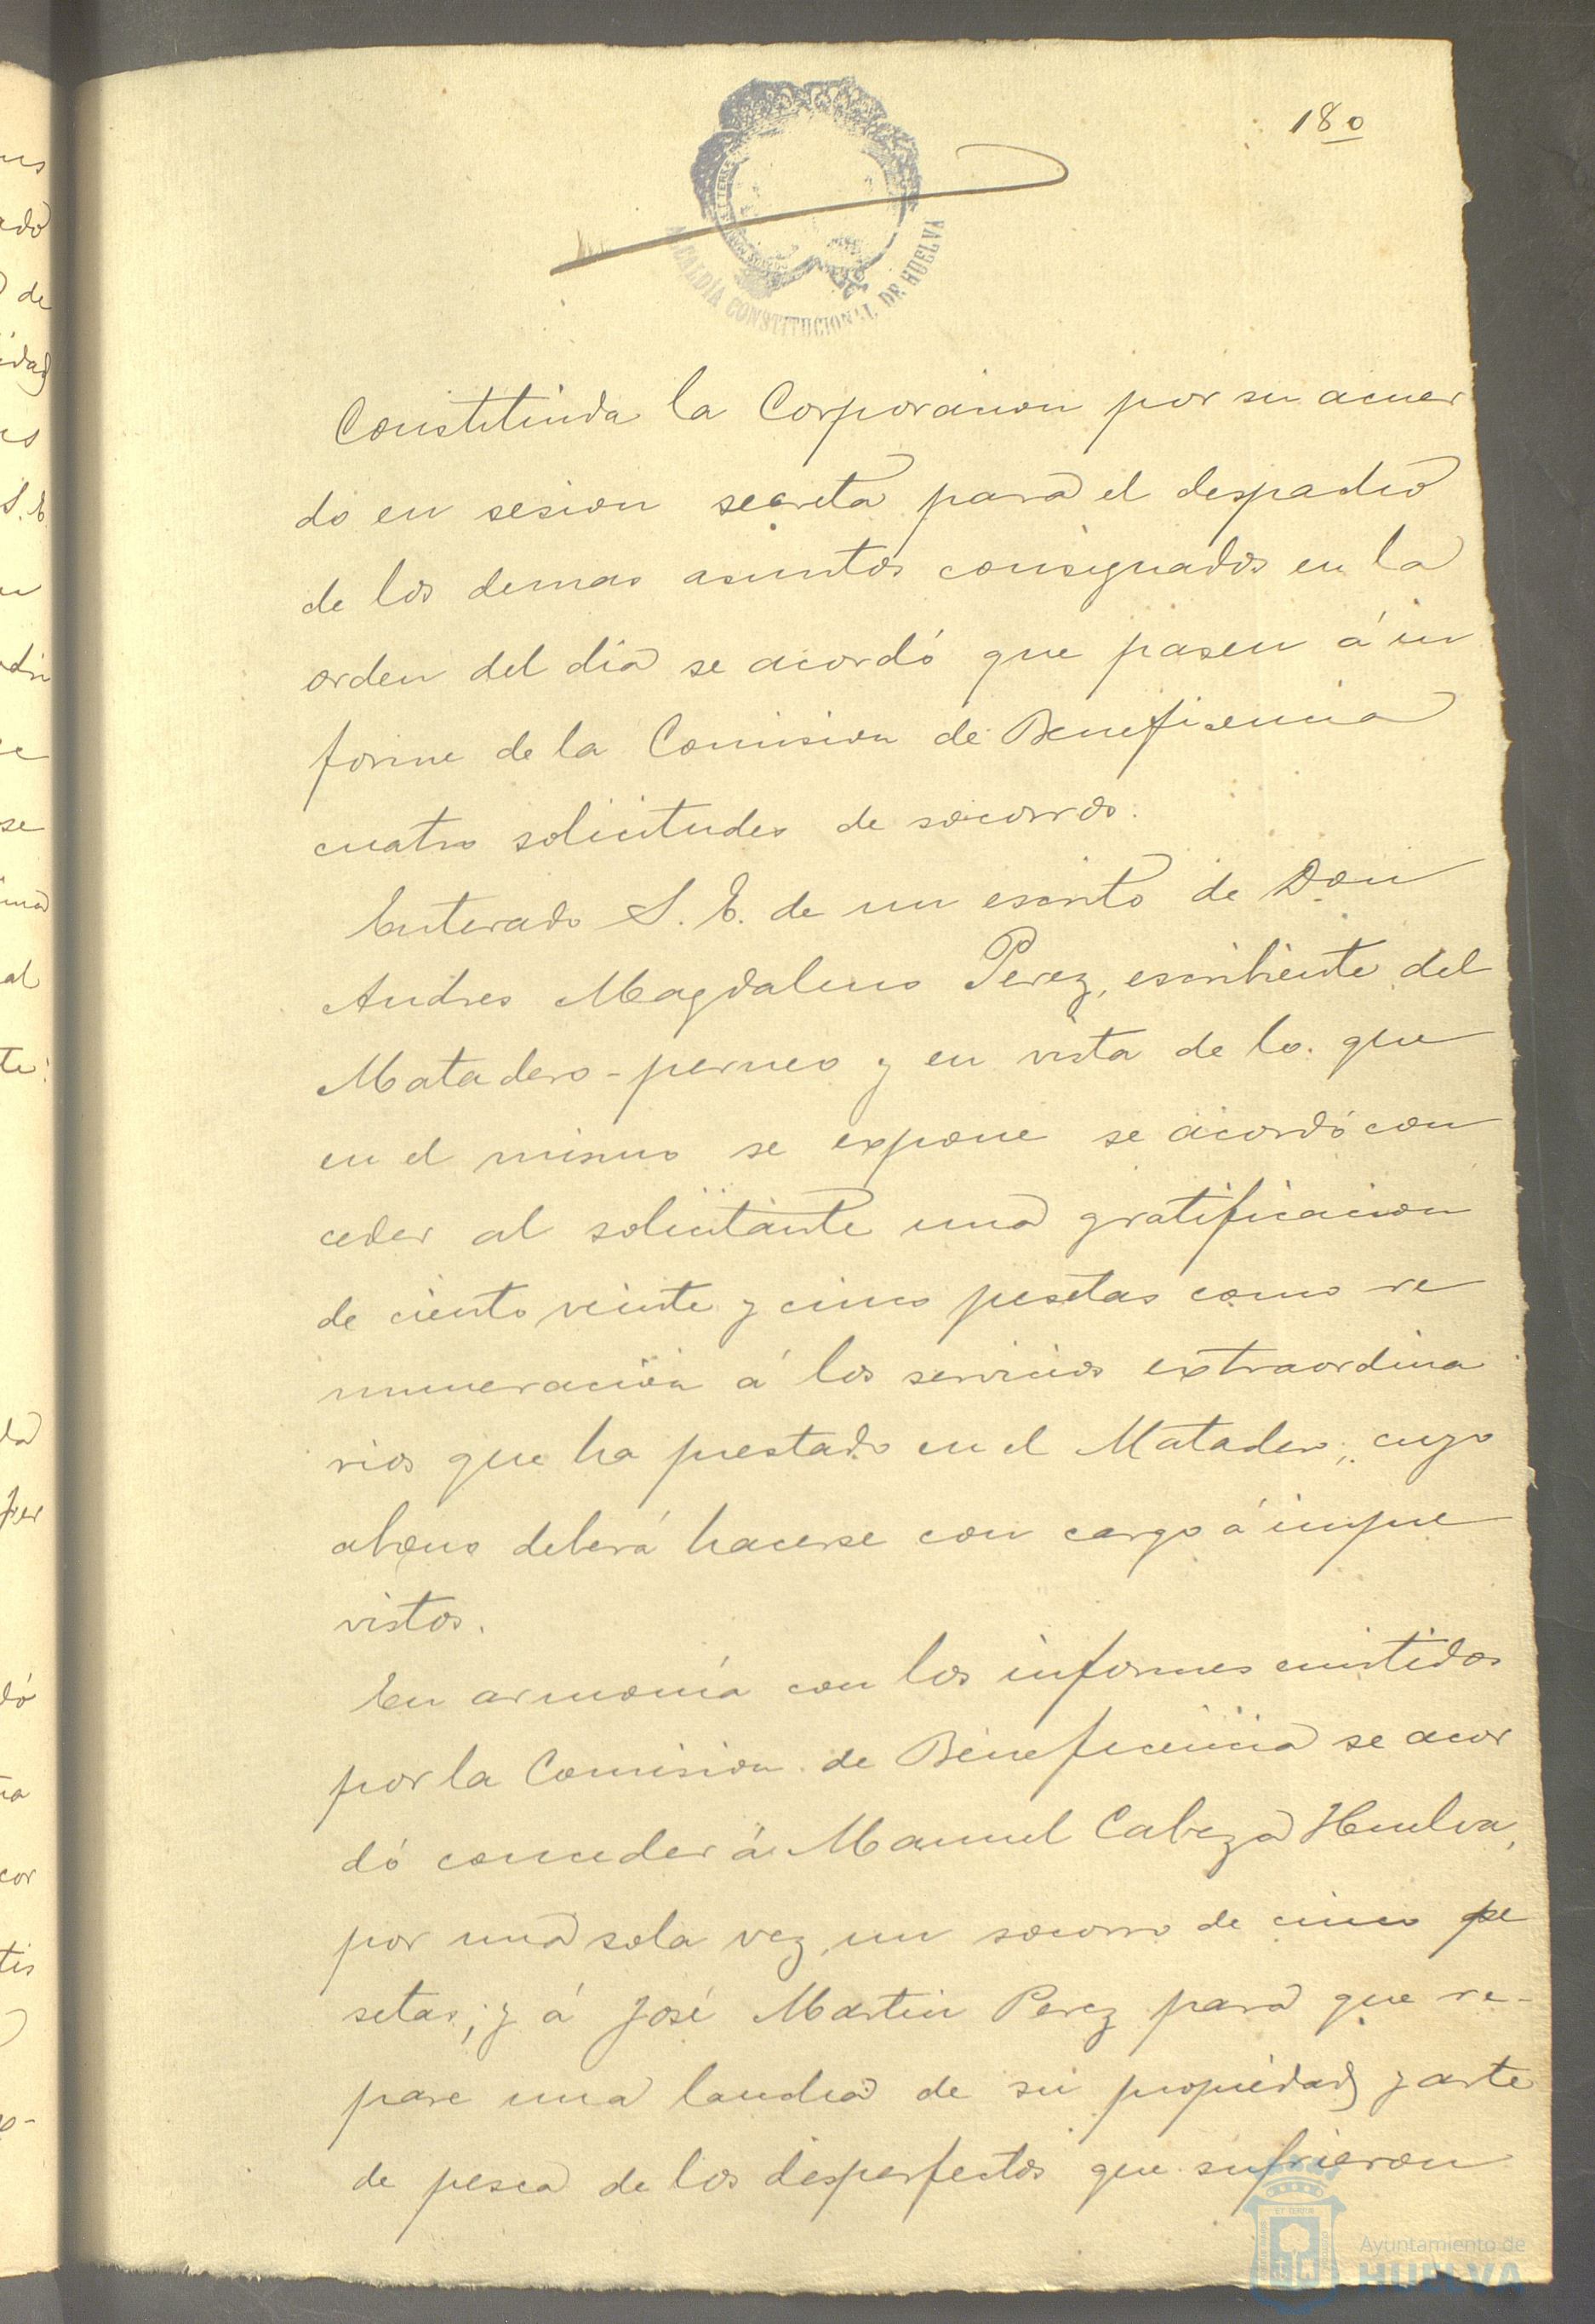 180
ALCALDÍA CONSTITUCIONAL DE HUELVA
Constituida la Corporacion por su acuer
do en sesion secreta para el despacho
de los demas asuntos consignados en la
orden del dia se acordó que pasen á in
forme de la Comision de Beneficencia
cuatro solicitudes de socorros.
Enterado S. E. de un escrito de Don
Andres Magdaleno Perez, escribiente del
Matadero-perneo y en vista de lo que
en el mismo se expone se acordó con
ceder al solicitante una gratificacion
de ciento veinte y cinco pesetas como re
muneración á los servicios extraordina
rios que ha prestado en el Matadero; cuyo
abono deberá hacerse con cargo á impre
vistos.
En armonía con los informes emitidos
por la Comision de Beneficencia se acor
dó conceder á Manuel Cabeza Huelva,
por una sola vez, un socorro de cinco pe
setas; y á José Martin Perez para que re-
pare una lancha de su propiedad y arte
de pesca de los desperfectos que sufrieron
Ayuntamiento de
HUELVA